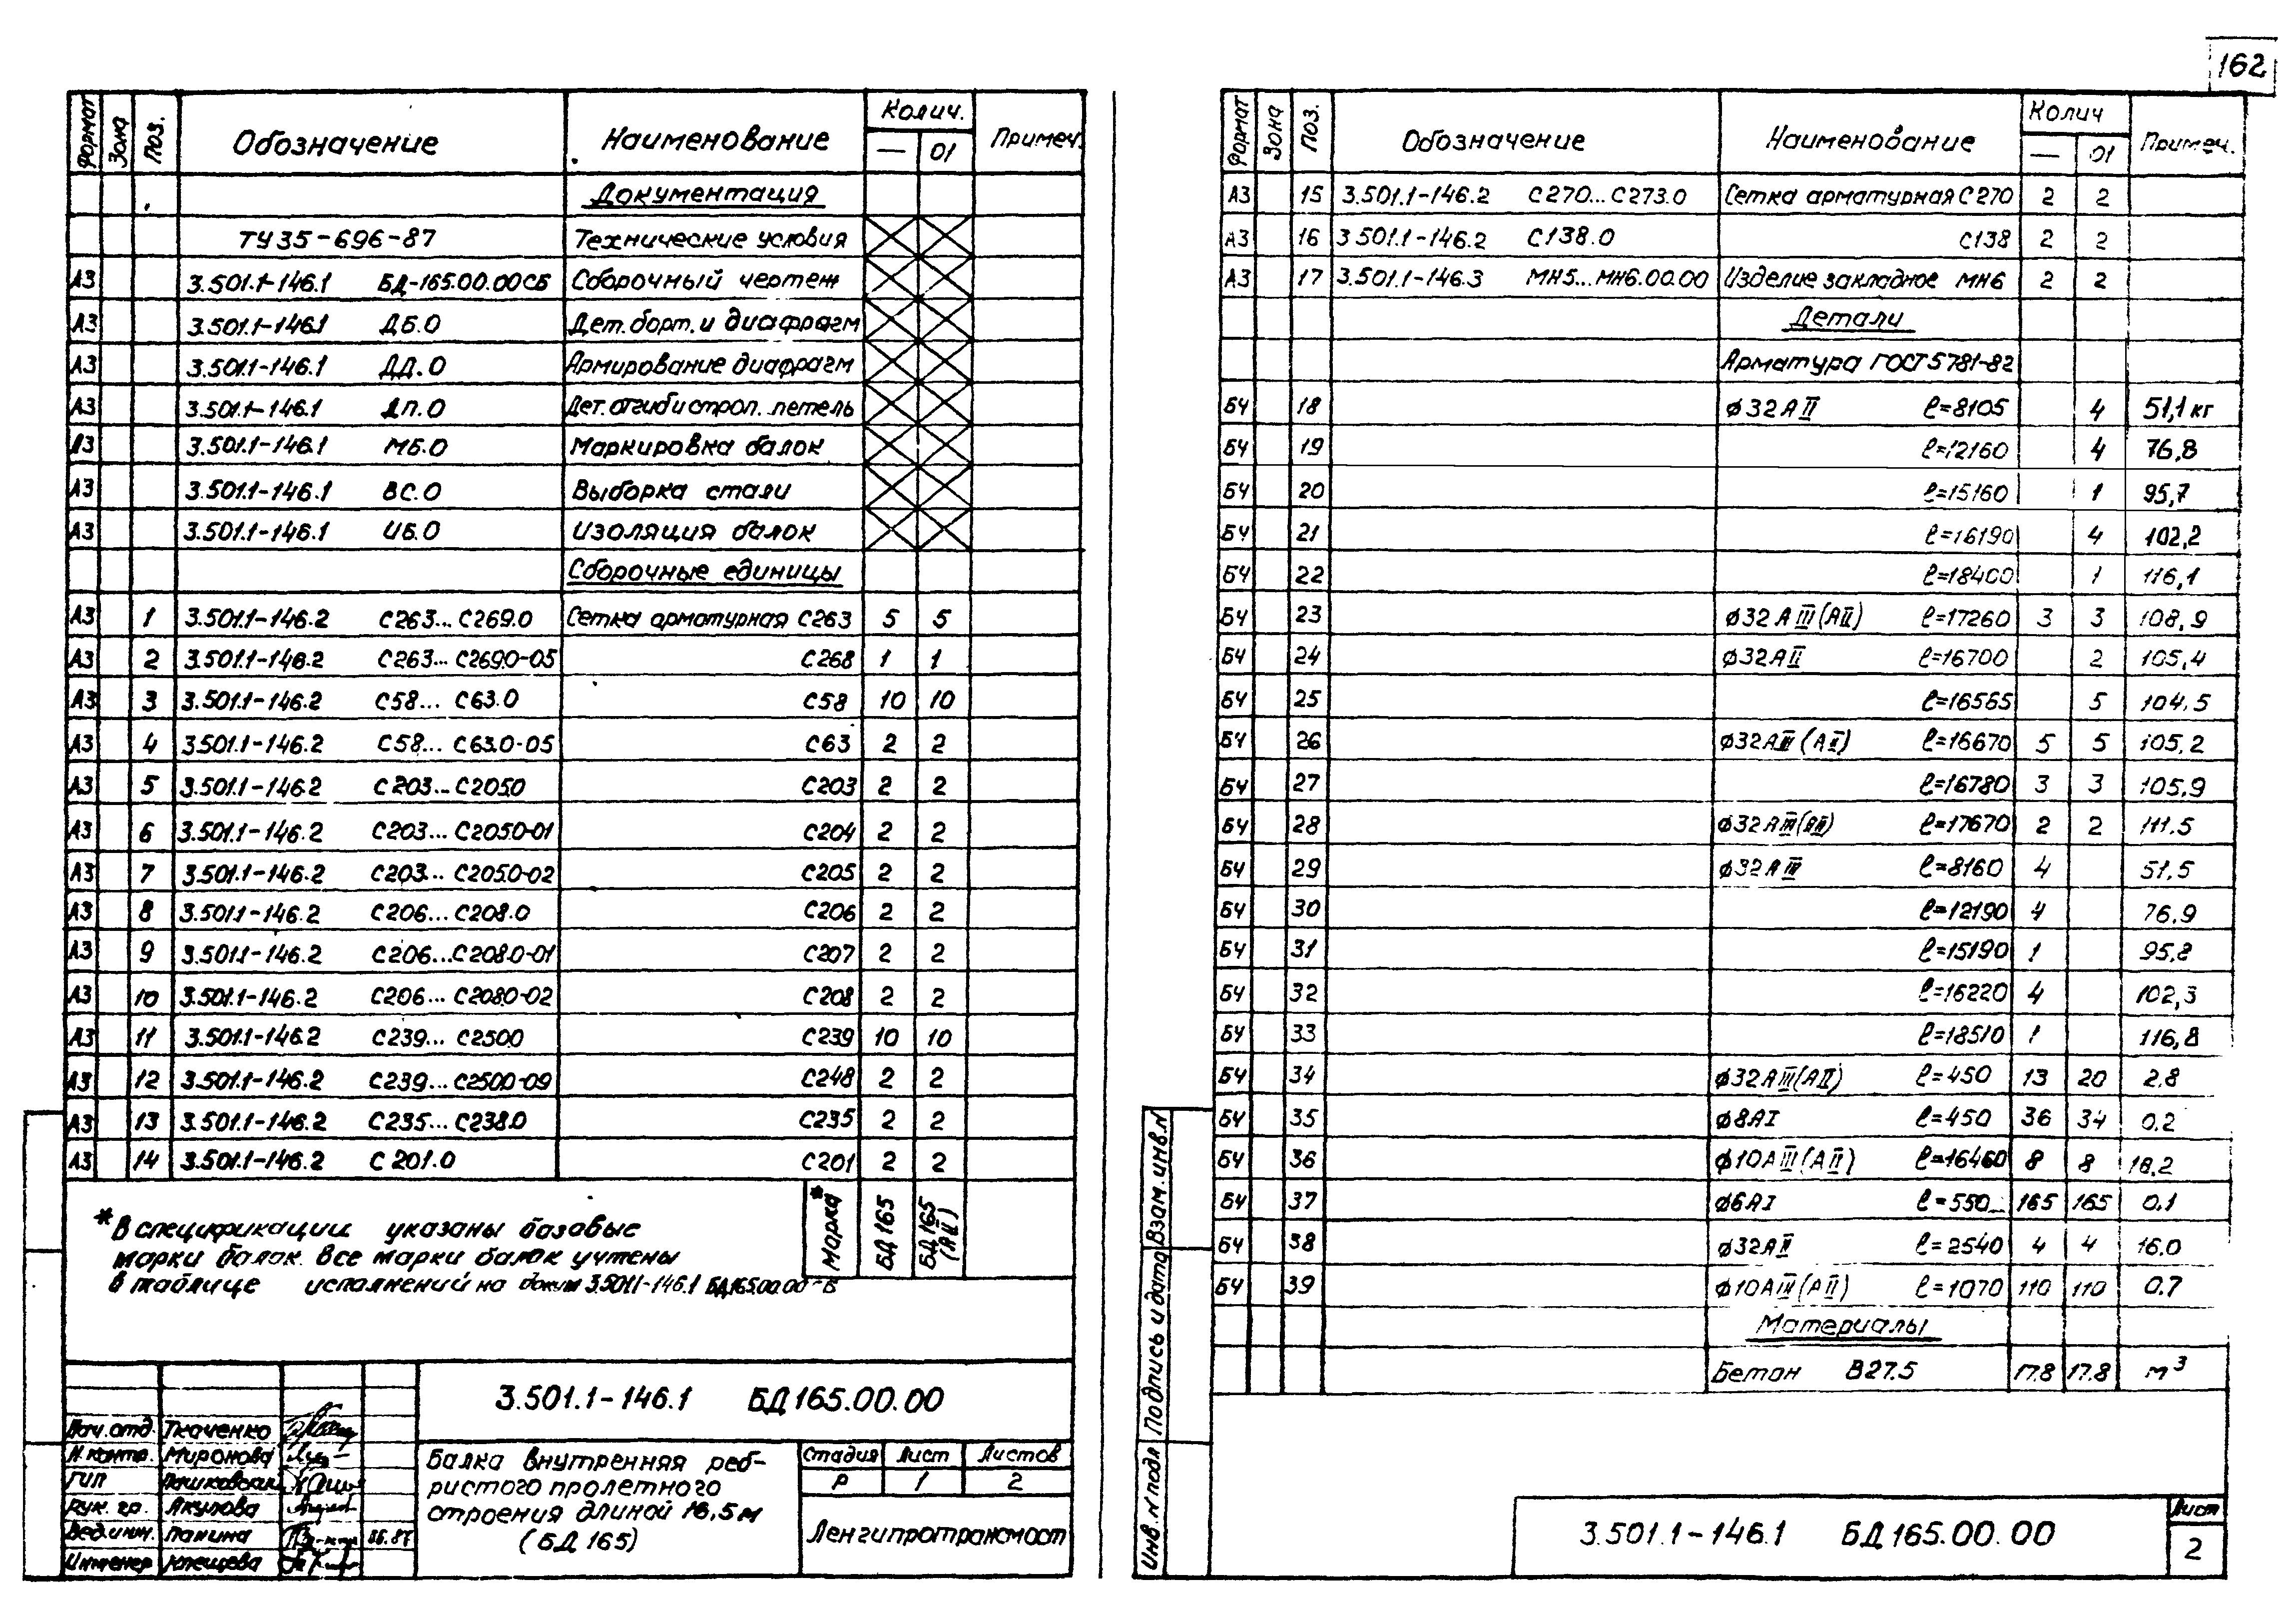 162
Формат Зона Поз. Обозначение Наименование Колич. Примеч.
— 01
Документация
ТУ 35-696-87 Технические условия
А3 3.501.1-146.1 БД-165.00.00СБ Сборочный чертеж
А3 3.501.1-146.1 ДБ.0 Дет. борт. и диафрагм
А3 3.501.1-146.1 ДД.0 Армирование диафрагм
А3 3.501.1-146.1 ДП.0 Дет. отгиб и строп. петель
А3 3.501.1-146.1 МБ.0 Маркировка балок
А3 3.501.1-146.1 ВС.0 Выборка стали
А3 3.501.1-146.1 ИБ.0 Изоляция балок
Сборочные единицы
А3 1 3.501.1-146.2 С263...С269.0 Сетка арматурная С263 5 5
А3 2 3.501.1-146.2 С263...С269.0-05 С268 1 1
А3 3 3.501.1-146.2 С58... С63.0 С58 10 10
А3 4 3.501.1-146.2 С58... С63.0-05 С63 2 2
А3 5 3.501.1-146.2 С203...С205.0 С203 2 2
А3 6 3.501.1-146.2 С203...С205.0-01 С204 2 2
А3 7 3.501.1-146.2 С203...С205.0-02 С205 2 2
А3 8 3.501.1-146.2 С206...С208.0 С206 2 2
А3 9 3.501.1-146.2 С206...С208.0-01 С207 2 2
А3 10 3.501.1-146.2 С206...С208.0-02 С208 2 2
А3 11 3.501.1-146.2 С239...С250.0 С239 10 10
А3 12 3.501.1-146.2 С239...С250.0-09 С248 2 2
А3 13 3.501.1-146.2 С235...С238.0 С235 2 2
А3 14 3.501.1-146.2 С201.0 С201 2 2
Марка* БД 165 БД 165 (АII)
*В спецификации указаны базовые
марки балок. Все марки балок учтены
в таблице исполнений на докум 3.501.1-146.1 БД165.00.00
3.501.1-146.1 БД165.00.00
Нач. отд. Ткаченко
Н. контр. Миронова
ГИП
Рук. гр. Акулова
Вед. инж. Панина 06.87
Инженер Клещева
Балка внутренняя реб-
ристого пролетного
строения длиной 16,5м
(БД 165)
Стадия Лист Листов
Р 1 2
Ленгипротрансмост
Формат Зона Поз. Обозначение Наименование Колич Примеч.
— 01
А3 15 3.501.1-146.2 С270...С273.0 Сетка арматурная С270 2 2
А3 16 3.501.1-146.2 С138.0 С138 2 2
А3 17 3.501.1-146.3 МН5...МН6.00.00 Изделие закладное МН6 2 2
Детали
Арматура ГОСТ 5781-82
БЧ 18 ф32АII ℓ=8105 4 51,1 кг
БЧ 19 ℓ=12160 4 76,8
БЧ 20 ℓ=15160 1 95,7
БЧ 21 ℓ=16190 4 102,2
БЧ 22 ℓ=18400 1 116,1
БЧ 23 ф32АIII(АII) ℓ=17260 3 3 108,9
БЧ 24 ф32АII ℓ=16700 2 105,4
БЧ 25 ℓ=16565 5 104,5
БЧ 26 ф32АIII(АII) ℓ=16670 5 5 105,2
БЧ 27 ℓ=16780 3 3 105,9
БЧ 28 ф32АIII(АII) ℓ=17670 2 2 111,5
БЧ 29 ф32АIII ℓ=8160 4 51,5
БЧ 30 ℓ=12190 4 76,9
БЧ 31 ℓ=15190 1 95,8
БЧ 32 ℓ=16220 4 102,3
БЧ 33 ℓ=18510 1 116,8
БЧ 34 ф32АIII(АII) ℓ=450 13 20 2.8
БЧ 35 ф8АI ℓ=450 36 34 0.2
БЧ 36 ф10АIII(АII) ℓ=16460 8 8 10.2
БЧ 37 ф6АI ℓ=550 165 165 0.1
БЧ 38 ф32АII ℓ=2540 4 4 16.0
БЧ 39 ф10АIII(АII) ℓ=1070 110 110 0.7
Материалы
Бетон В27.5 17.8 17.8 м³
Инв. N подл Подпись и дата Взам. инв. N
3.501.1-146.1 БД165.00.00
Лист
2